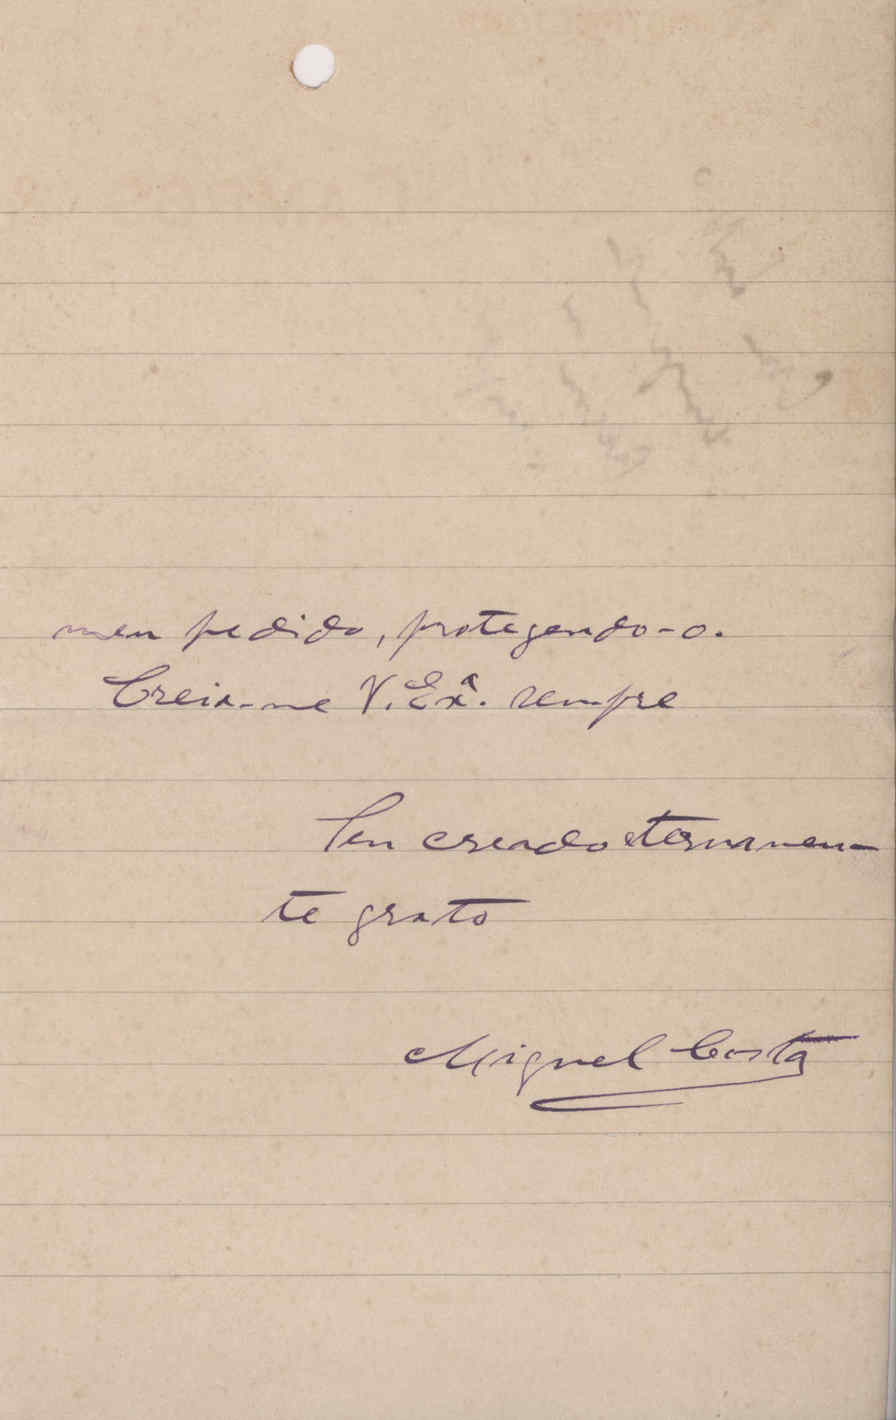 meu pedido, protegendo-o.
Creia-me V. Exª. sempre
Seu creado eternamen-
te grato
Miguel Costa